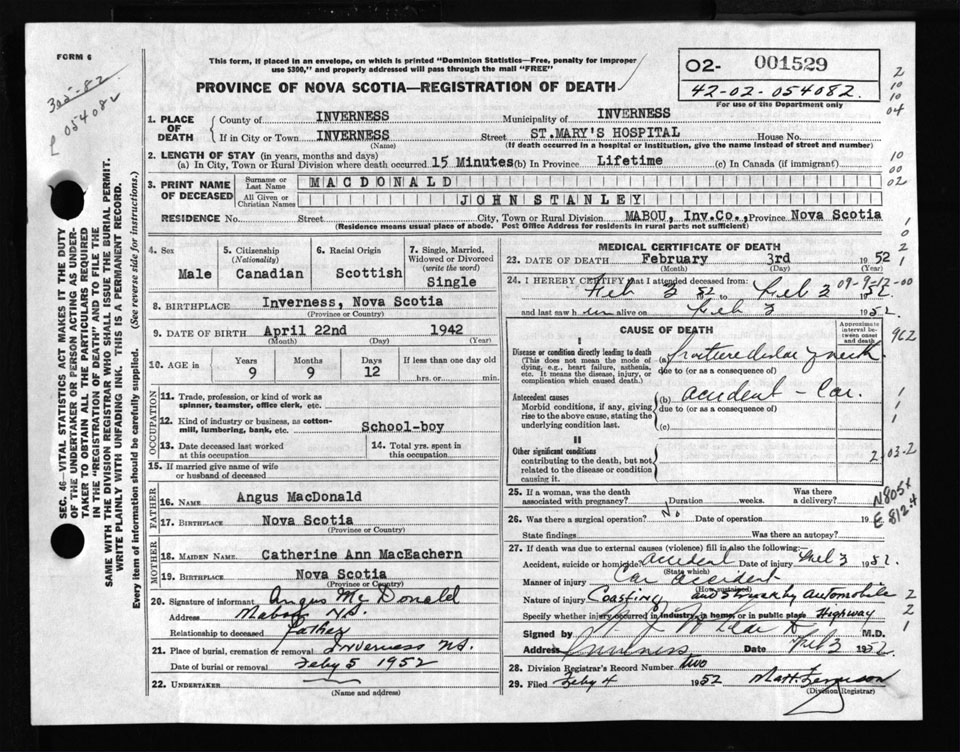 FORM 6
This form, if placed in an envelope, on which is printed "Dominion Statistics—Free, penalty for improper
use $300," and properly addressed will pass through the mail "FREE"
PROVINCE OF NOVA SCOTIA—REGISTRATION OF DEATH
O2- 001529
42-02-054082
For use of the Department only
305-82
054082
2
10
10
04
10
00
02
1. PLACE OF DEATH
County of INVERNESS Municipality of INVERNESS
If in City or Town INVERNESS Street ST.MARY'S HOSPITAL House No.
(Name) (If death occurred in a hospital or institution, give the name instead of street and number)
2. LENGTH OF STAY (in years, months and days)
(a) In City, Town or Rural Division where death occurred 15 Minutes (b) In Province Lifetime (c) In Canada (if immigrant)
3. PRINT NAME OF DECEASED
Surname or Last Name MACDONALD
All Given or Christian Names JOHN STANLEY
RESIDENCE No. Street City, Town or Rural Division MABOU, Inv.Co., Province Nova Scotia
(Residence means usual place of abode. Post Office Address for residents in rural parts not sufficient)
4. Sex Male
5. Citizenship (Nationality) Canadian
6. Racial Origin Scottish
7. Single, Married, Widowed or Divorced (write the word) Single
8. BIRTHPLACE Inverness, Nova Scotia
(Province or Country)
9. DATE OF BIRTH April 22nd 1942
(Month) (Day) (Year)
10. AGE in Years 9 Months 9 Days 12 If less than one day old hrs. or min.
OCCUPATION
11. Trade, profession, or kind of work as spinner, teamster, office clerk, etc.
12. Kind of industry or business, as cotton-mill, lumbering, bank, etc. School-boy
13. Date deceased last worked at this occupation
14. Total yrs. spent in this occupation
15. If married give name of wife or husband of deceased
FATHER
16. NAME Angus MacDonald
17. BIRTHPLACE Nova Scotia
(Province or Country)
MOTHER
18. MAIDEN NAME Catherine Ann MacEachern
19. BIRTHPLACE Nova Scotia
(Province or Country)
20. Signature of informant Angus McDonald
Address Mabou N.S.
Relationship to deceased father
21. Place of burial, cremation or removal Inverness N.S.
Date of burial or removal Feby 5 1952
22. UNDERTAKER
(Name and address)
MEDICAL CERTIFICATE OF DEATH
23. DATE OF DEATH February 3rd 1952
(Month) (Day) (Year)
24. I HEREBY CERTIFY that I attended deceased from:
Feb 3 52 to Feb 3 1952
09-9-17-00
and last saw him alive on Feb 3 1952
CAUSE OF DEATH
Approximate interval between onset and death
I
Disease or condition directly leading to death
(This does not mean the mode of dying, e.g., heart failure, asthenia, etc. It means the disease, injury, or complication which caused death.)
(a) fracture disloc neck
due to (or as a consequence of)
Antecedent causes
Morbid conditions, if any, giving rise to the above cause, stating the underlying condition last.
(b) accident - Car.
due to (or as a consequence of)
(c)
II
Other significant conditions
contributing to the death, but not related to the disease or condition causing it.
962
2 03-2
25. If a woman, was the death associated with pregnancy? Duration weeks. Was there a delivery?
26. Was there a surgical operation? No Date of operation 19
State findings Was there an autopsy?
N805x
E812.4
27. If death was due to external causes (violence) fill in also the following:
Accident, suicide or homicide? accident Date of injury Feb 3 1952.
(State which)
Manner of injury Car accident
(How sustained)
Nature of injury Coasting and struck by automobile
Specify whether injury occurred in industry, in home, or in public place Highway
Signed by M.D.
Address Inverness Date Feb 3 1952.
28. Division Registrar's Record Number two
29. Filed Feby 4 1952 Matt. Ferguson
(Division Registrar)
SEC. 46—VITAL STATISTICS ACT MAKES IT THE DUTY
OF THE UNDERTAKER OR PERSON ACTING AS UNDER-
TAKER TO OBTAIN ALL THE PARTICULARS REQUIRED
IN THE "REGISTRATION OF DEATH" AND TO FILE THE
SAME WITH THE DIVISION REGISTRAR WHO SHALL ISSUE THE BURIAL PERMIT.
WRITE PLAINLY WITH UNFADING INK. THIS IS A PERMANENT RECORD.
Every item of information should be carefully supplied. (See reverse side for instructions.)